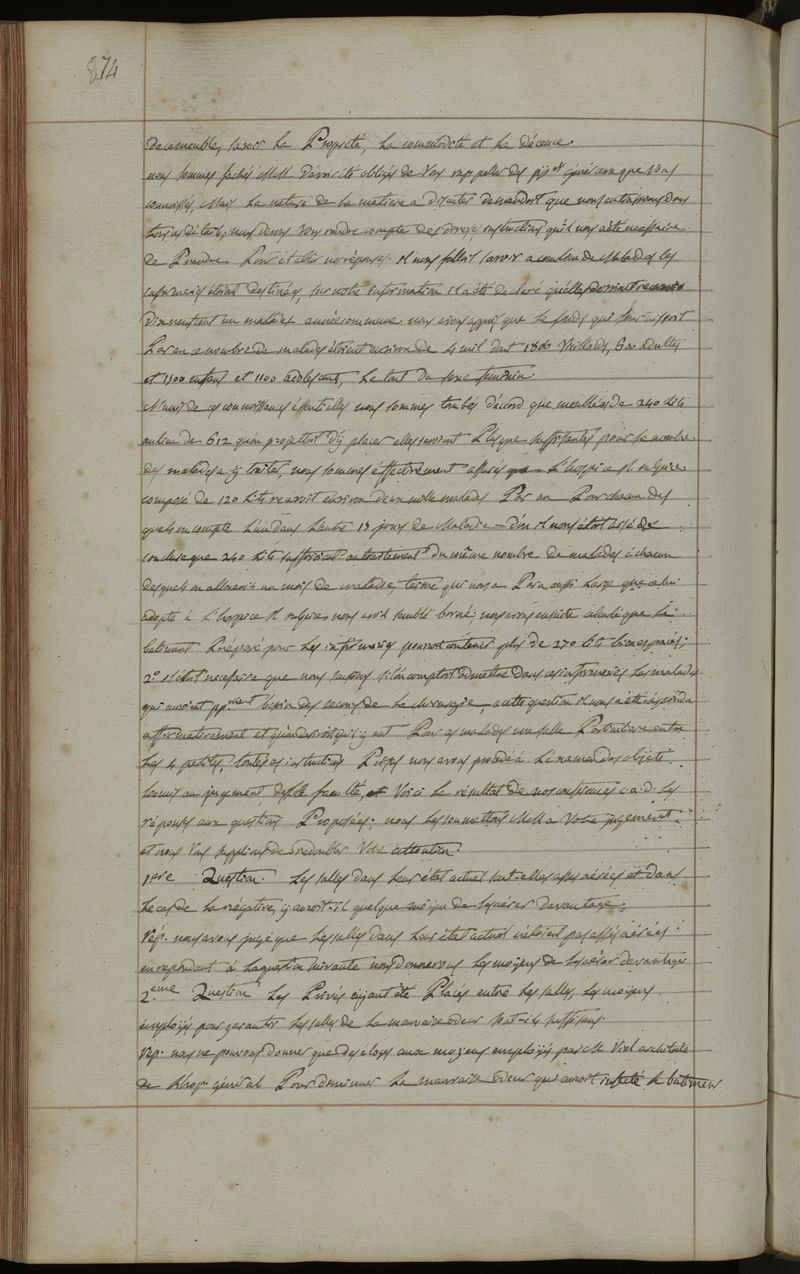 874
de ce meuble, savoir la Propreté, la commodité et la décence.
nous sommes fachés MM d'avoir été obligés de vous rappeller des généraux que vous
connoissés, Mais la nature de la matiere a discuter demandoit que nous entrassions dans
tous ces détails, nous devons vous rendre compte des instructions qu'il nous a été necessaire
de Prendre Pour établir nos réponses. il nous falloit savoir a combien de Malades les
infirmeries étoient destinées, sur notre information il a été déclaré qu'elles devroient recevoir
malades année commune. nous avons appris que
ce nombre de malades étoient environ de 4 mil dont 1800 Vieillards, 600 adultes
et 1500 enfans et 1100 adolescents, le tout du sexe feminin.
Munis de ces connoissances essentielles nous sommes tombés d'accord que meublées de 240 lits
au lieu de 612 qu'on projettoit d'y placer elles seroient Plus que suffisantes pour le nombre
des malades a y traiter, nous sommes effectivement assurés que L'hospice St Sulpice
composé de 120 lits recevoit environ deux mille malades Par an Pour chacun des
quels on compte L'un dans L'autre 15 jours de Maladie – d'où il nous étoit aisé de
conclure que 240 lits suffiroient au traitement du même nombre de malades à chacun
desquels on alloueroit un mois de maladie, terme qui nous a Paru aussi large que celui
adopté à L'hospice St Sulpice nous avoit semblé borné; nous avons ensuite calculé que le
batiment Préparé pour les infirmeries pouvoit contenir plus de 270 lits bien espacés;
2° il étoit necessaire que nous sussions si l'on comptoit admettre dans ces infirmeries les malades
qui auroient besoin des secours de la chirurgie – a cette question il nous a été répondu
affirmativement et qu'on desiroit qu'il y eut Pour ces malades une salle Particuliere entre
les 4 petites, toutes ces instructions Prises nous avons procédé à L'examen des objets
soumis au jugement de la faculté, et Voici le résultat de nos conférences c. a. d. les
réponses aux questions Proposées; nous les soumettons MM a Votre jugement
et nous vous supplions de redoubler Votre attention.
1ere Question. Les salles dans leur état actuel sont-elles assés aérées et dans
le cas de la négative, y auroit-il quelque moyen de les aérer davantage;
Rép. nous avons jugé que les salles dans leur état actuel n'étoient pas assés aérées;
en repondant à la question suivante nous donnerons les moyens de les aérer davantage
2eme Question Les Privés ayant été Placés entre les salles, les moyens
employés pour garantir les salles de la mauvaise odeur sont-ils suffisans.
Rép. nous ne pouvons donner que des éloges aux moyens employés par M Viel architecte
de L'hop. général Pour diminuer la mauvaise odeur qui auroit infecté le batiment